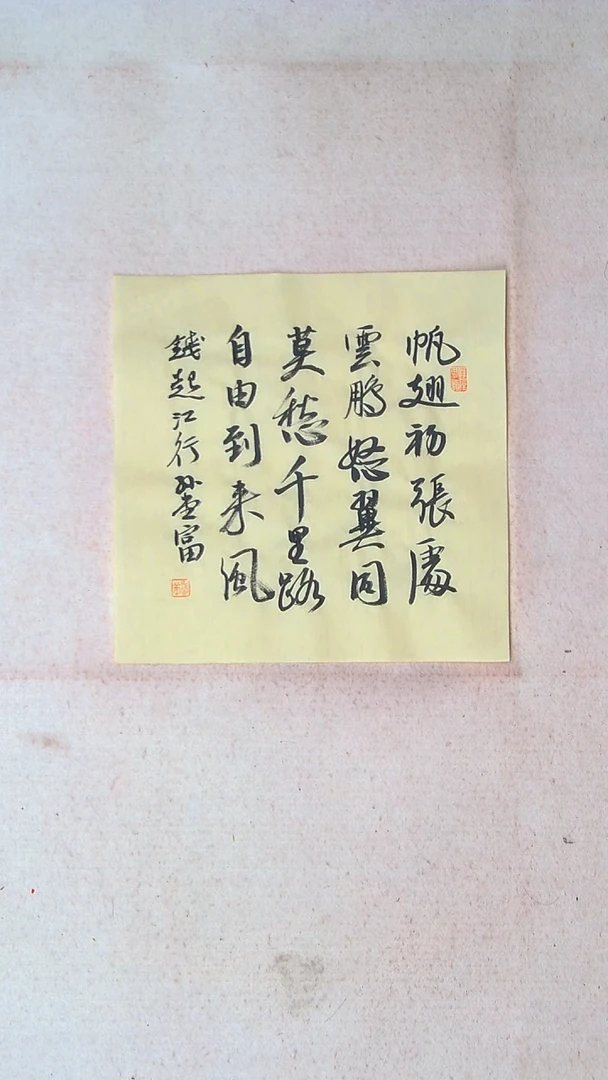 帆翅初張處
雲鵬怒翼同
莫愁千里路
自由到来風
錢起江行 富